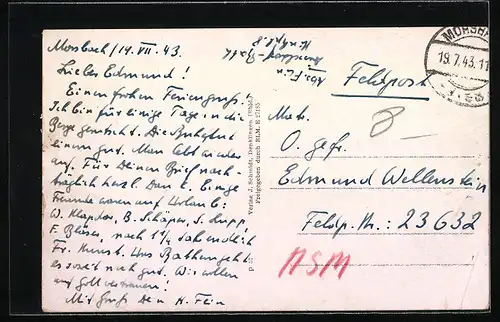 Morsbach, 14. VII. 43.
Lieber Edmund!
Einen frohen Feriengruß.
Ich bin für einige Tage in die
Berge gerutscht. Die Ruhe tut
einem gut. Man lebt wieder
auf. Für Deinen Brief nach-
träglich herzl. Dank. Einige
Freunde waren auf Urlaub:
W. Klapdor, B. Schäper, S. Lupp,
F. Bläser, nach 1¼ Jahr endlich
Fr. Kunst. Uns Ratingern geht
es soweit noch gut. Wir wollen
auf Gott vertrauen!
Mit Gruß Dein H. Fein
Abs. Fein
Verlag J. Schmidt, Denklingen
Freigegeben durch RLM.
MORSBACH
19.7.43.11
Feldpost
Matr.
O. gefr.
Edmund Wellenstein
Feldp. Nr.: 23632
NSM